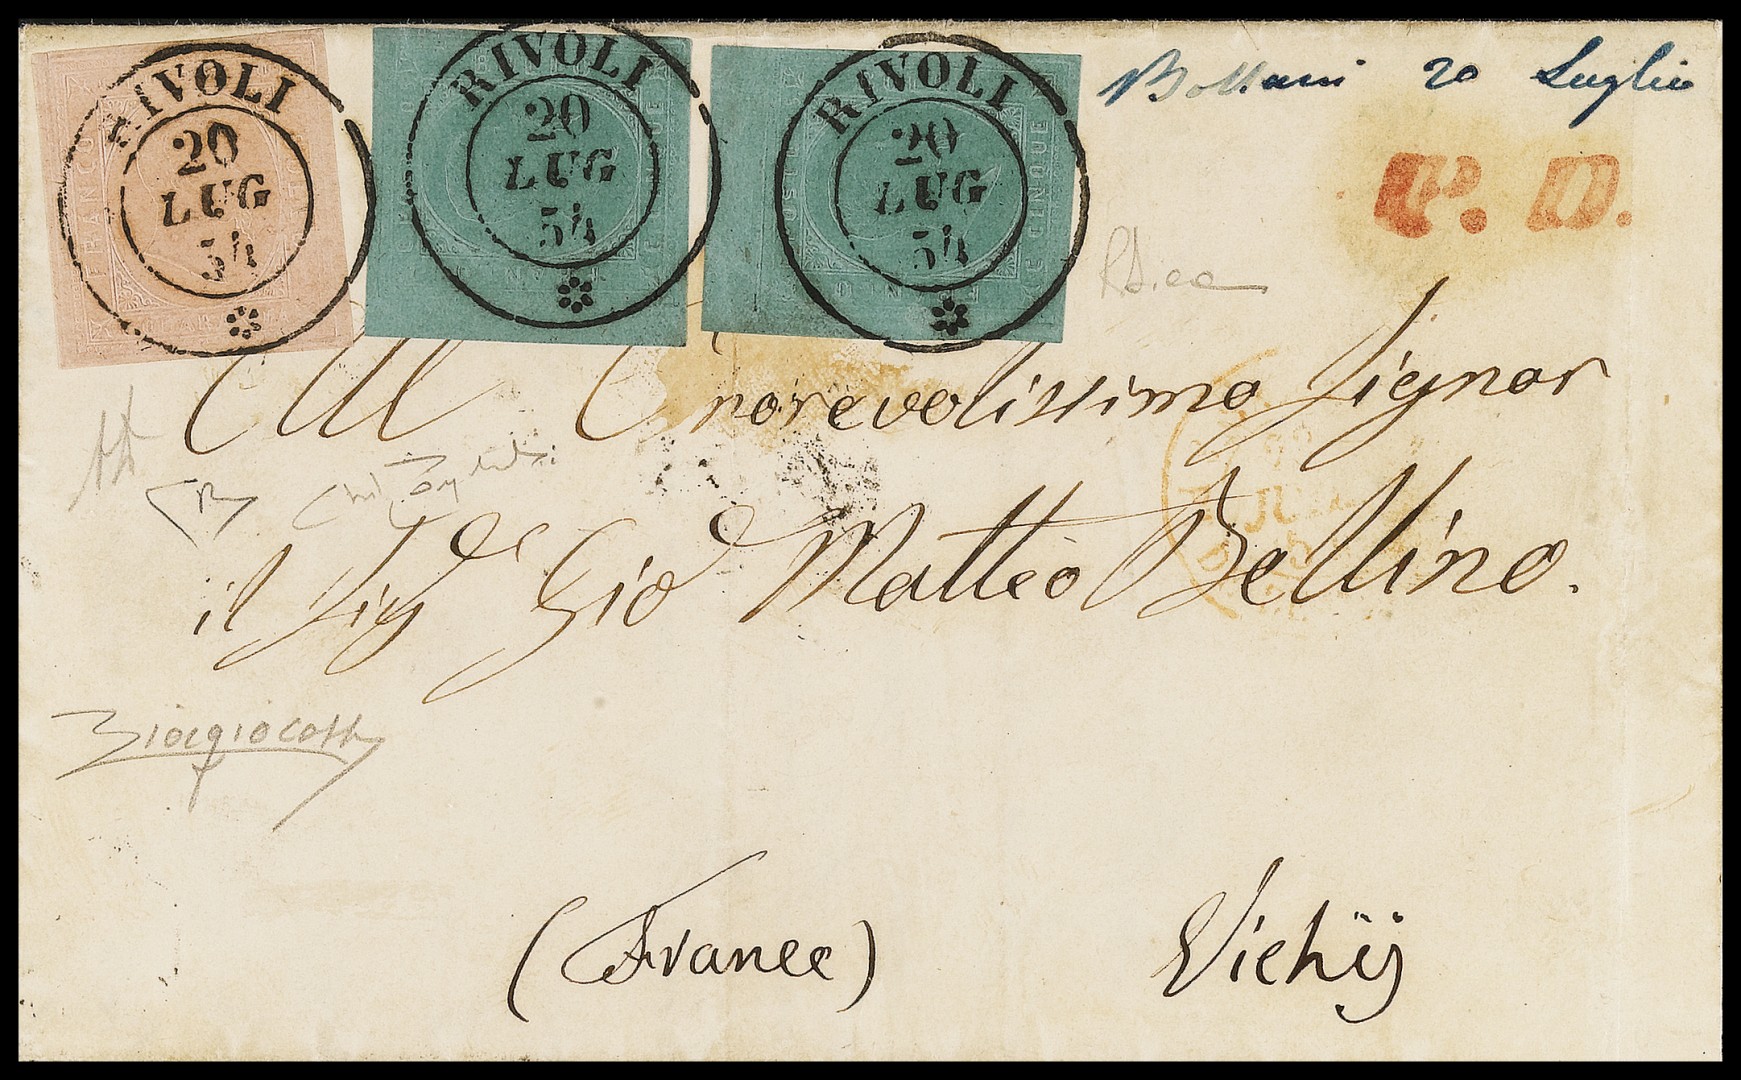 RIVOLI
20
LUG
54
RIVOLI
20
LUG
54
RIVOLI
20
LUG
54
FRANCO
CINQUE
20 Luglio
P. D.
All Onorevolissimo Signor
il Sig.r Gio Matteo Bellino.
Giorgiocolla
(France) Vichÿ